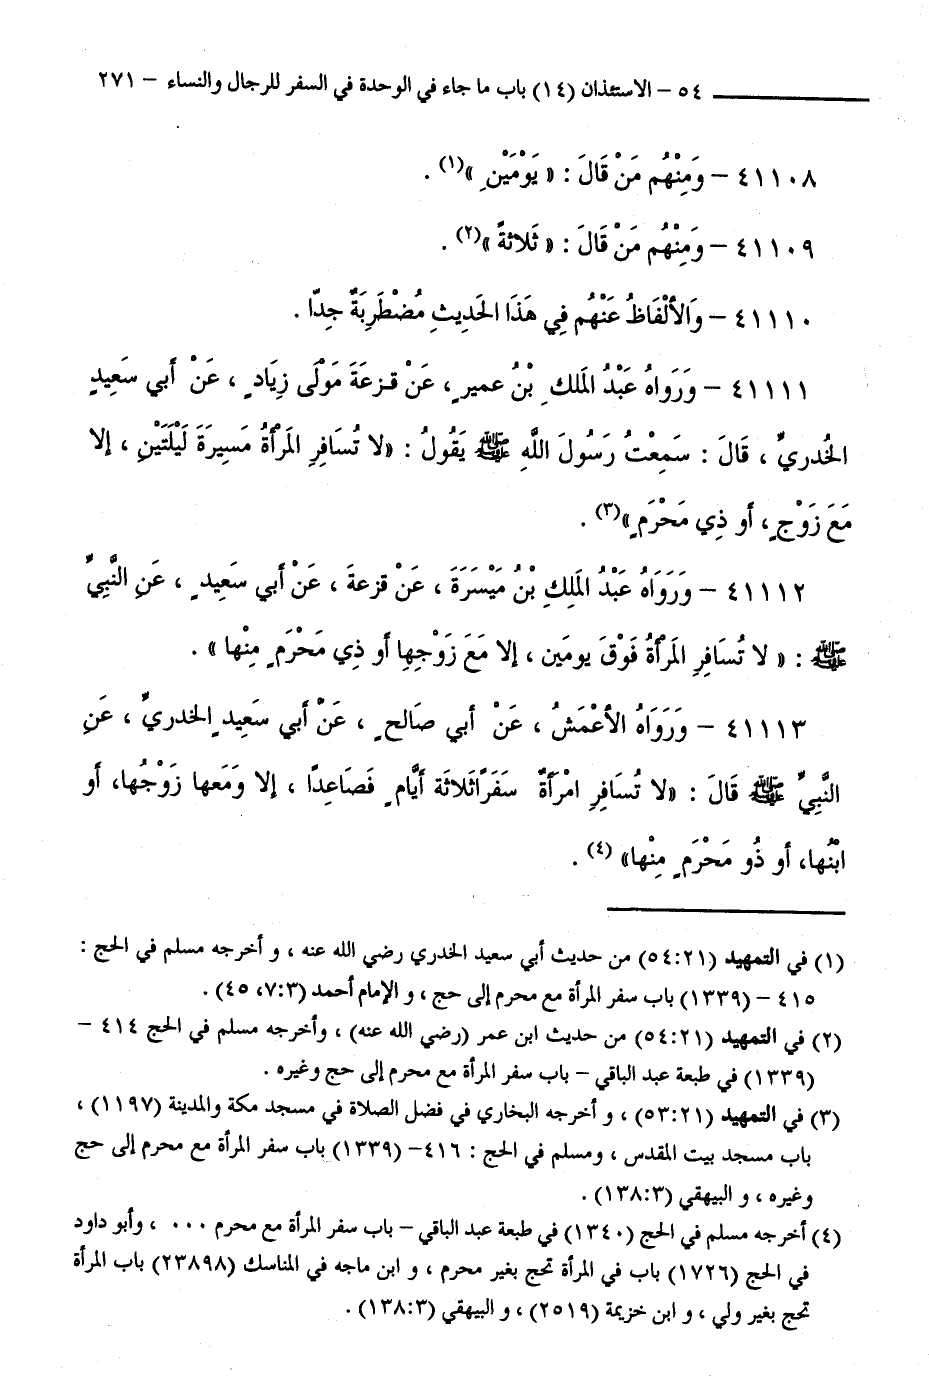 ٥٤ – الاستئذان (١٤) باب ما جاء في الوحدة في السفر للرجال والنساء – ٢٧١
٤١١٠٨ – وَمِنْهُم مَنْ قَالَ : « يَوْمَيْنِ »(١) .
٤١١٠٩ – وَمِنْهُم مَنْ قَالَ : « ثَلاثةً »(٢) .
٤١١١٠ – وَالأَلْفَاظُ عَنْهُم فِي هَذَا الحَدِيثِ مُضْطَرِبَةٌ جِدّا .
٤١١١١ – وَرَوَاهُ عَبْدُ المَلك ِ بْنُ عمير ٍ، عَنْ قـزعَةَ مَوْلَى زِيَاد ٍ ، عَنْ أَبي سَعِيدٍ
الخُدريِّ ، قَالَ : سَمِعْتُ رَسُولَ اللَّهِ ﷺ يَقُولُ : «لا تُسَافِرِ المَرْأَةُ مَسِيرَةَ لَيْلَتَيْنِ ، إلا
مَعَ زَوْج ٍ، أو ذِي مَحْرَم ٍ»(٣) .
٤١١١٢ – وَرَوَاهُ عَبْدُ المَلِكِ بْنُ مَيْسَرَةَ ، عَنْ قزعةَ ، عَنْ أبي سَعِيد ٍ ، عَنِ النَّبِيِّ
ﷺ : « لا تُسَافِرِ المَرْأَةُ فَوْقَ يومَين ، إلا مَعَ زَوْجِها أو ذِي مَحْرَم ٍ مِنْها » .
٤١١١٣ – وَرَوَاهُ الأعْمَشُ ، عَنْ أبي صَالح ٍ ، عَنْ أبي سَعِيد ٍالخدريِّ ، عَنِ
النَّبِيِّ ﷺ قَالَ : «لا تُسَافِرِ امْرَأَةٌ سَفَرًا ثَلاثَة أيَّام ٍ فَصَاعِدًا ، إلا وَمَعها زَوْجُها، أو
ابْنُها، أو ذُو مَحْرَم ٍ مِنْها» (٤) .
(١) في التمهيد (٥٤:٢١) من حديث أبي سعيد الخدري رضي الله عنه ، و أخرجه مسلم في الحج :
٤١٥ – (١٣٣٩) باب سفر المرأة مع محرم إلى حج ، و الإمام أحمد (٧:٣، ٤٥) .
(٢) في التمهيد (٥٤:٢١) من حديث ابن عمر (رضي الله عنه) ، وأخرجه مسلم في الحج ٤١٤ –
(١٣٣٩) في طبعة عبد الباقي – باب سفر المرأة مع محرم إلى حج وغيره .
(٣) في التمهيد (٥٣:٢١) ، و أخرجه البخاري في فضل الصلاة في مسجد مكة والمدينة (١١٩٧) ،
باب مسجد بيت المقدس ، ومسلم في الحج : ٤١٦– (١٣٣٩) باب سفر المرأة مع محرم إلى حج
وغيره ، و البيهقي (١٣٨:٣) .
(٤) أخرجه مسلم في الحج (١٣٤٠) في طبعة عبد الباقي – باب سفر المرأة مع محرم ٠٠٠ ، وأبو داود
في الحج (١٧٢٦) باب في المرأة تحج بغير محرم ، و ابن ماجه في المناسك (٢٣٨٩٨) باب المرأة
تحج بغير ولي ، و ابن خزيمة (٢٥١٩) ، و البيهقي (١٣٨:٣) .